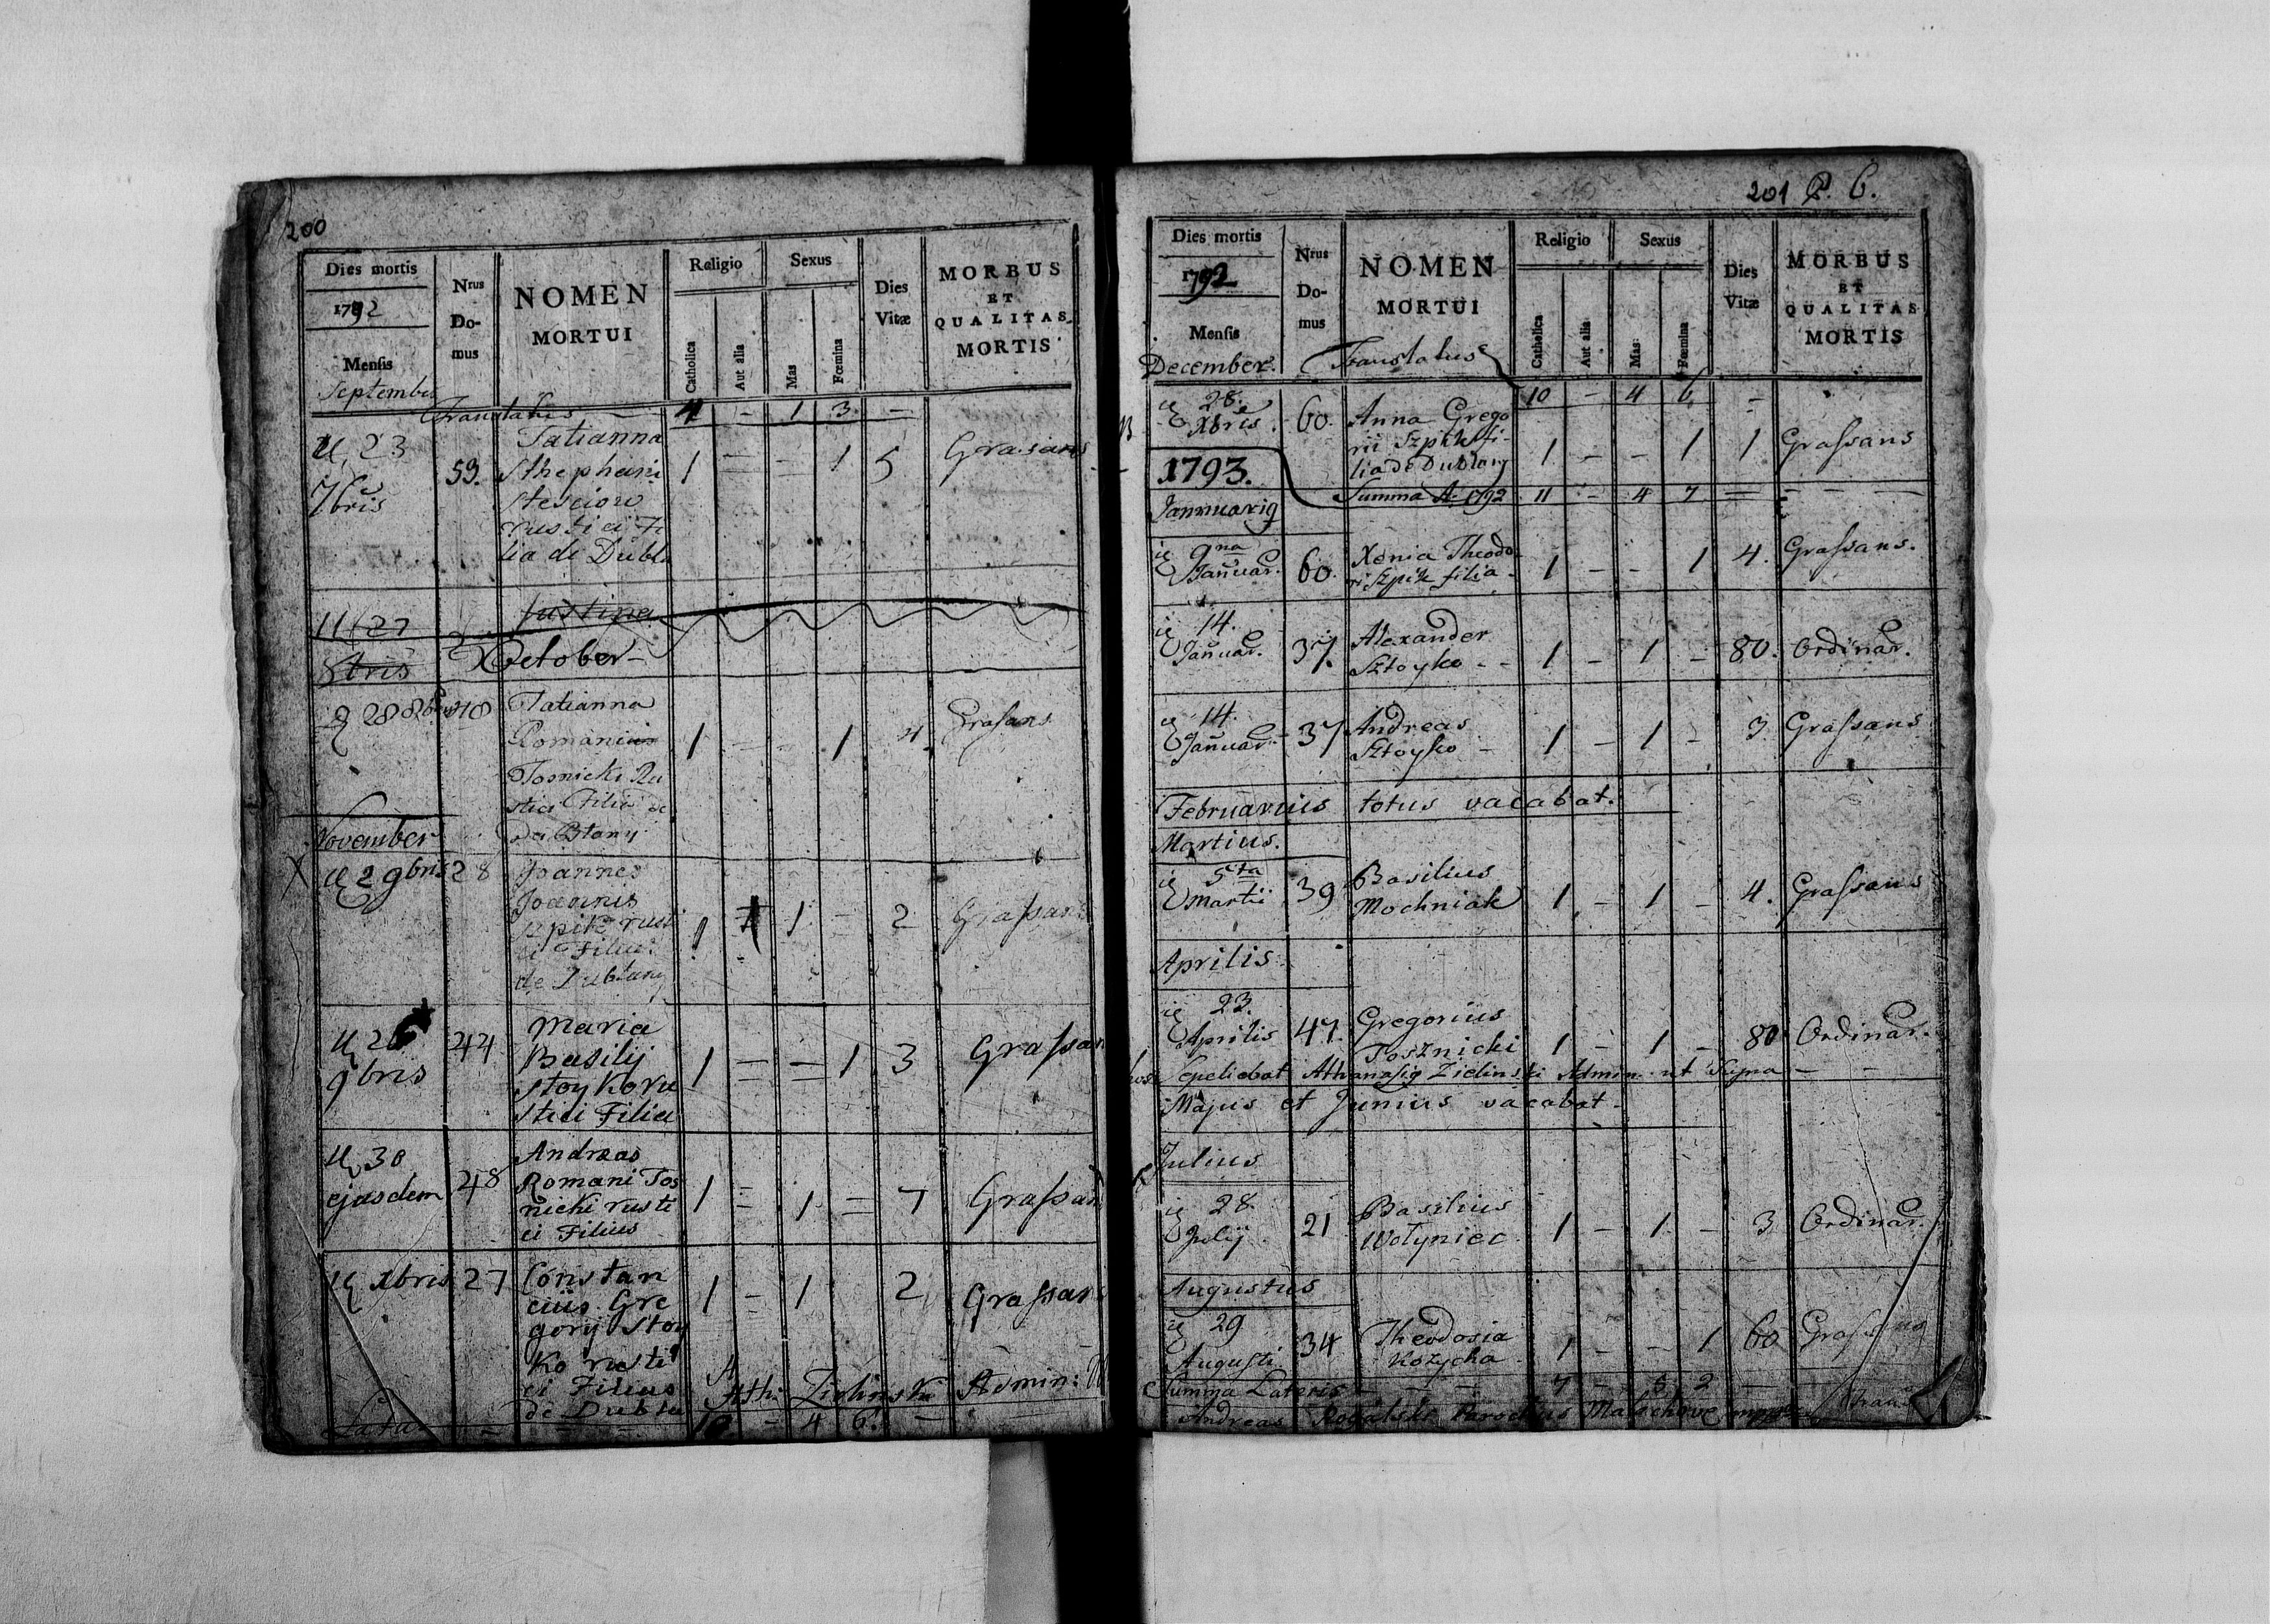 200
Dies mortis
1792
Mensis
Septembris
Nrus
Do-
mus
NOMEN
MORTUI
Religio
Catholica
Aut alia
Sexus
Mas
Fœmina
Dies
Vitæ
MORBUS
ET
QUALITAS
MORTIS
Translatus — 4 - 1 3 —
23
7bris
59.
Tatianna
Stephani
rustici Fi
lia de Dubl.
1 - - 1 5 Grasans
11 27
Justina
8bris
October
28 8bris 48
Tatianna
Romani
Tosnicki Ru
stici Filia
1 - - 1 4 Grasans
November
2 9bris 28
Joannes
Joannis
Szpik rusti
ci Filius
de Dublany
1 1 - 2 Grasans
26
9bris
44
Maria
Basilij
Stoyko ru
stici Filia
1 - - 1 3 Grassan
30
ejusdem
48
Andreas
Romani Tos
nicki rusti
ci Filius
1 - 1 - 7 Grassan
Xbris 27
Constan
cius Gre
gorij Stoy
ko rusti
ci Filius
de Dubla
1 - 1 2 Grassans
Ath: Zielinski Admin:
10 - 4 6. —
201 P. 6.
Dies mortis
1792
Mensis
December.
Nrus
Do-
mus
NOMEN
MORTUI
Translatus
Religio
Catholica
Aut alia
Sexus
Mas
Fœmina
Dies
Vitæ
MORBUS
ET
QUALITAS
MORTIS
10 - 4 6 -
28.
Xbris
60.
Anna Grego
rii Szpik fi-
lia de Dublany
1 - - 1 1 Grassans
1793.
Summa A. 1792 11 - 4 7 —
Jannuarig
9na
Januar.
60.
Xenia Theodo-
ri Szpik filia
1 - - 1 4. Grassans.
14.
Januar.
37.
Alexander
Sztoyko - -
1 - 1 - 80. Ordinar.
14.
Januar.
37
Andreas
Sztoyko -
1 - 1 - 3 Grassans
Februarius totus vacabat.
Martius.
5ta
Martii
39
Basilius
Mochniak
1 - 1 - 4. Grassans
Aprilis
23.
Aprilis
47.
Gregorius
Tosznicki
1 - 1 - 80 Ordinar.
Sepeliebat Athanasig Zielinski Admin. ut Supra —
Majus et Junius vacabat -
Julius
28.
Julij
21
Basilius
Wołyniec
1 - 1 - 3 Ordinar.
Augustus
29
Augusti
34
Theodosia
Kozycha
1 - - 1 60 Grassans
Summa Lateris — 7 - 5 2 —
Andreas Rogalski Parochus